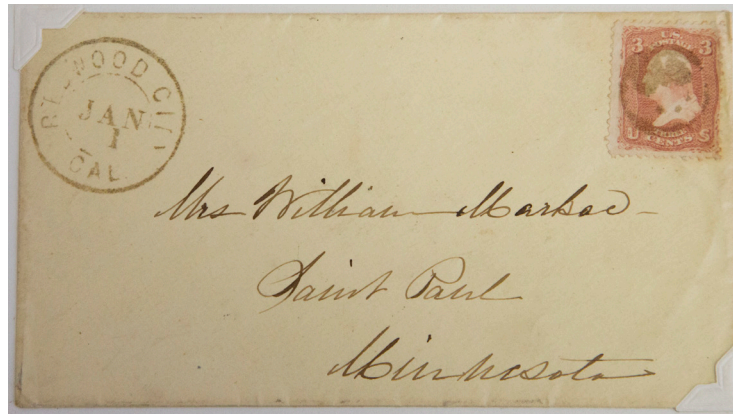 REDWOOD CITY
JAN
1
CAL
3 U.S. 3
POSTAGE
U CENTS S
Mrs William Markoe
Saint Paul
Minnesota